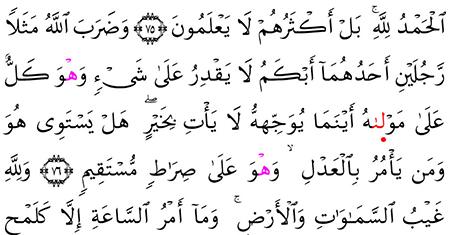 ٱلْحَمْدُ لِلَّهِ ۚ بَلْ أَكْثَرُهُمْ لَا يَعْلَمُونَ ۝٧٥ وَضَرَبَ ٱللَّهُ مَثَلًا
رَّجُلَيْنِ أَحَدُهُمَآ أَبْكَمُ لَا يَقْدِرُ عَلَىٰ شَىْءٍ وَهْوَ كَلٌّ
عَلَىٰ مَوْلَىٰهُ أَيْنَمَا يُوَجِّههُّ لَا يَأْتِ بِخَيْرٍ ۖ هَلْ يَسْتَوِى هُوَ
وَمَن يَأْمُرُ بِٱلْعَدْلِ ۙ وَهْوَ عَلَىٰ صِرَاطٍ مُّسْتَقِيمٍ ۝٧٦ وَلِلَّهِ
غَيْبُ ٱلسَّمَـٰوَٰتِ وَٱلْأَرْضِ ۚ وَمَآ أَمْرُ ٱلسَّاعَةِ إِلَّا كَلَمْحِ